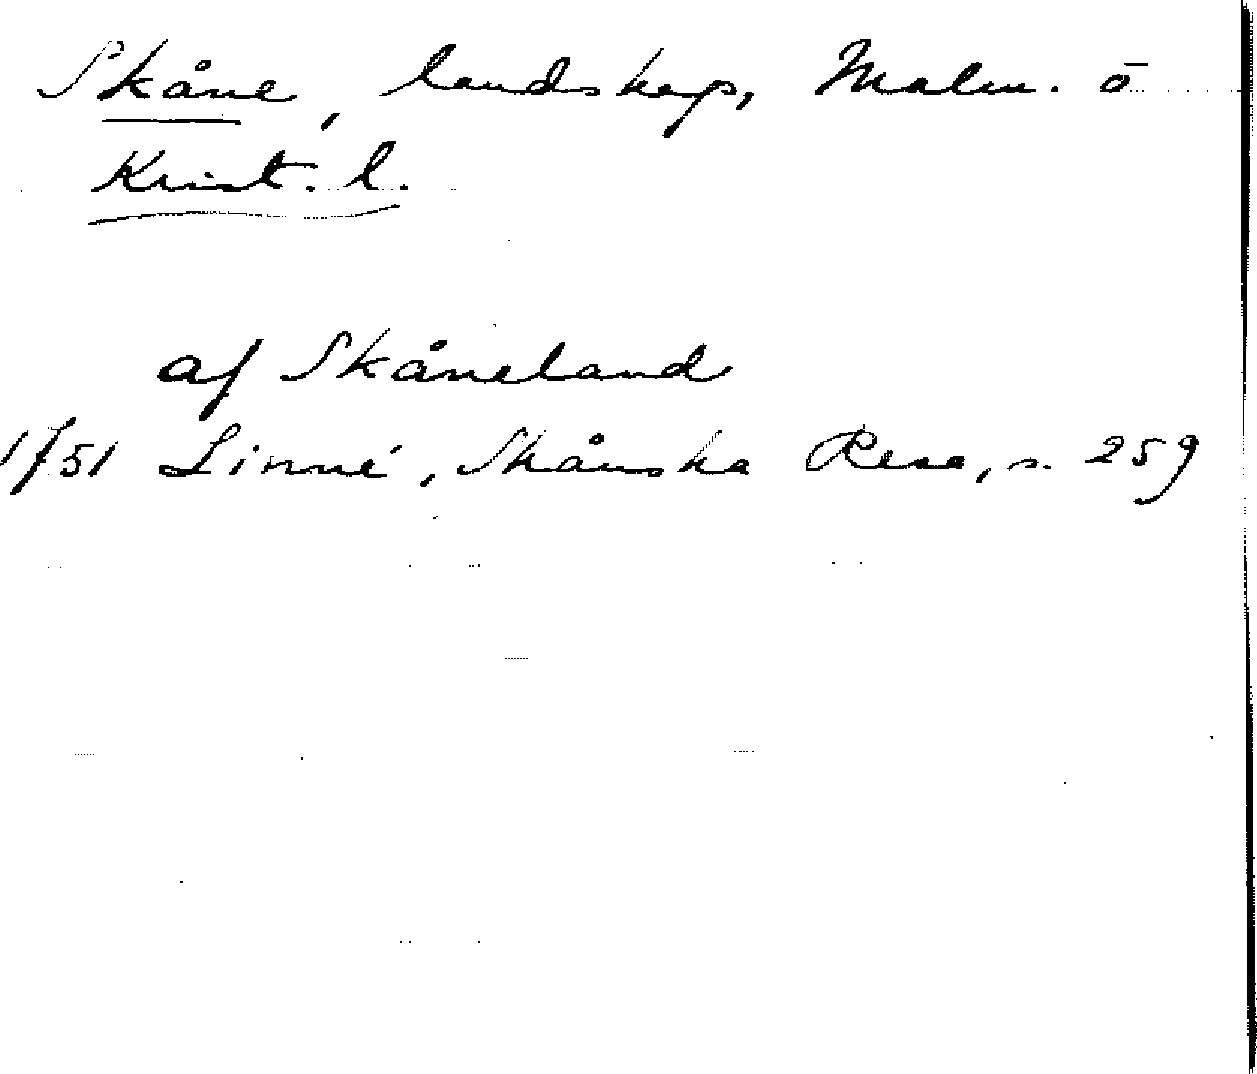 Skåne, landskap, Malm. o
Krist. l.
af Skåneland
1751 Linné, Skånska Resa, s. 259